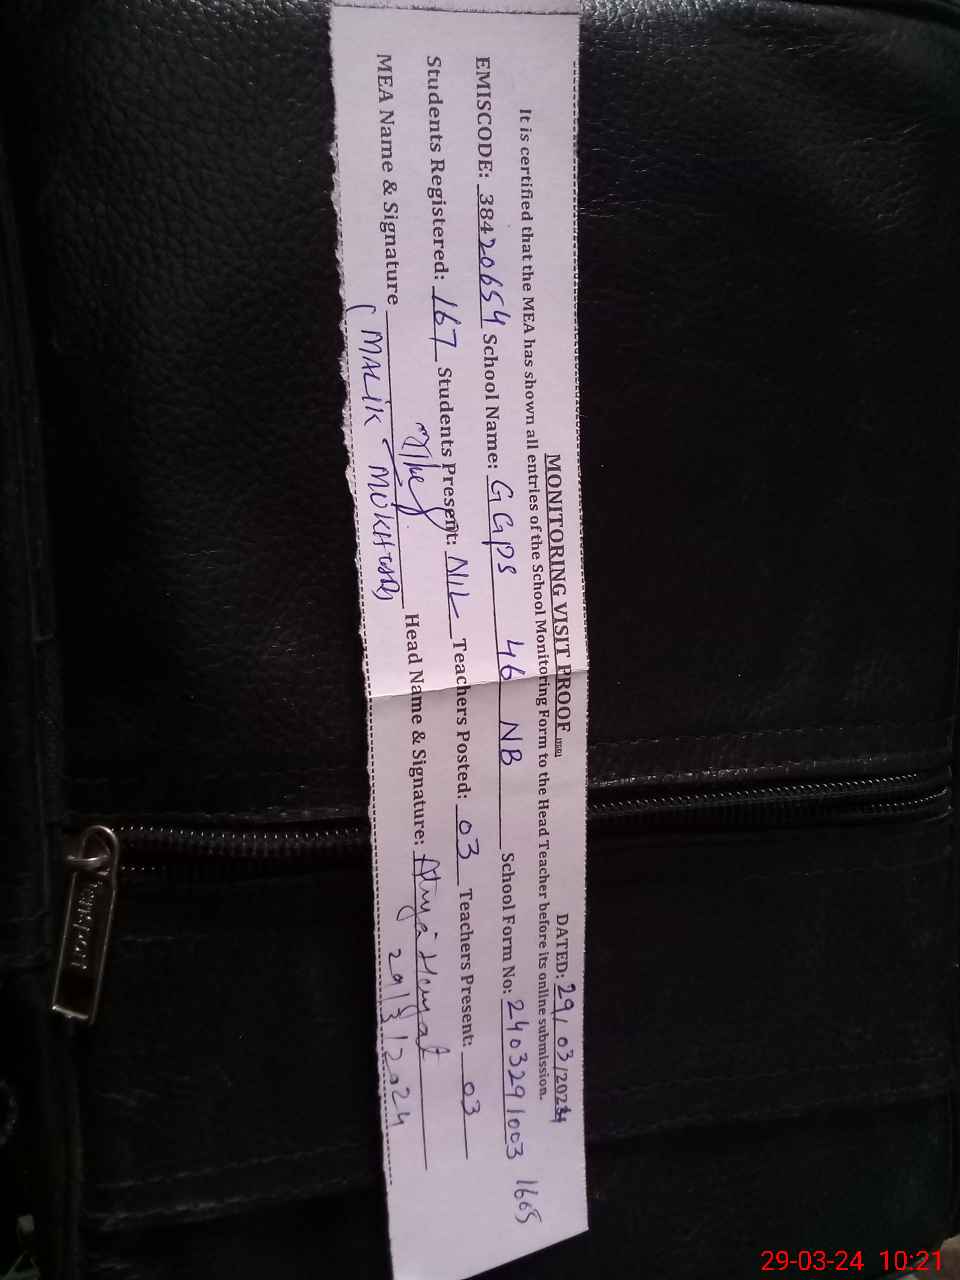 MONITORING VISIT PROOF
DATED: 29/03/2024
It is certified that the MEA has shown all entries of the School Monitoring Form to the Head Teacher before its online submission.
EMISCODE: 38420654 School Name: GGPS 46 NB School Form No: 2403291003 1665
Students Registered: 167 Students Present: NIL Teachers Posted: 03 Teachers Present: 03
MEA Name & Signature Head Name & Signature:
(MALIK MUKHTAR)
29/3/2024
29-03-24 10:21